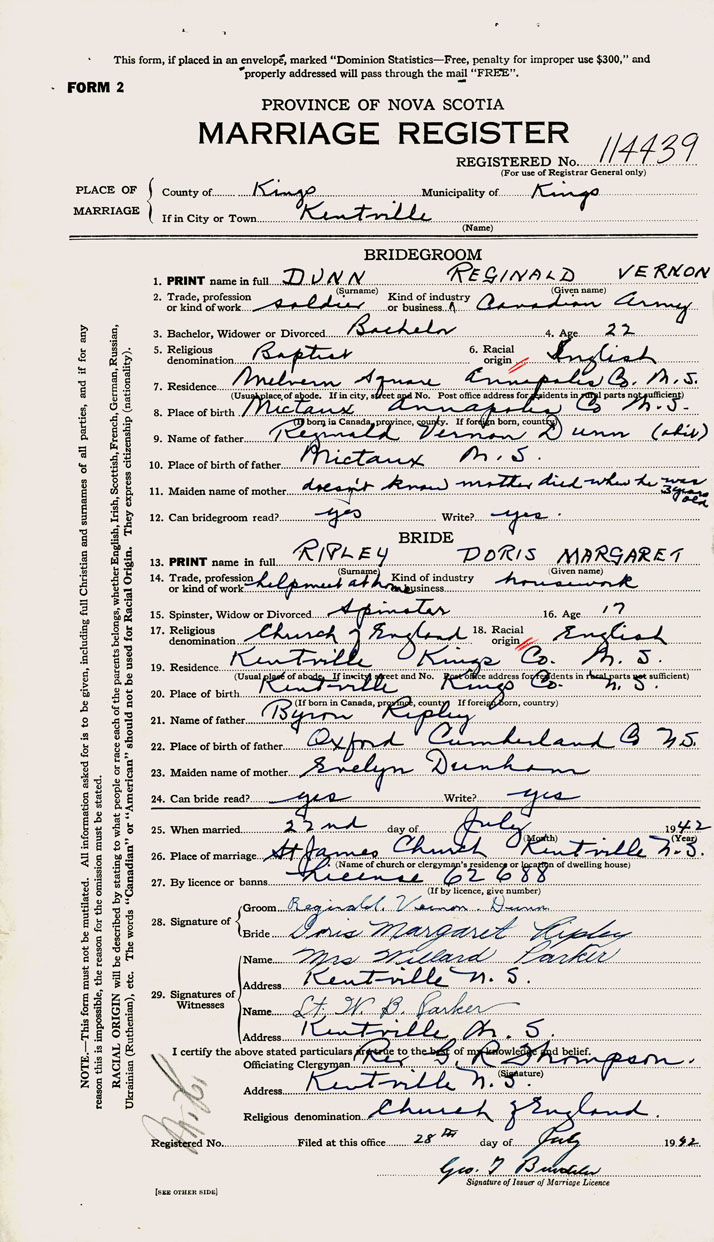 This form, if placed in an envelope, marked "Dominion Statistics—Free, penalty for improper use $300," and
properly addressed will pass through the mail "FREE".
FORM 2
PROVINCE OF NOVA SCOTIA
MARRIAGE REGISTER
REGISTERED No. 114439
(For use of Registrar General only)
PLACE OF MARRIAGE
County of Kings Municipality of Kings
If in City or Town Kentville
(Name)
BRIDEGROOM
1. PRINT name in full DUNN REGINALD VERNON
(Surname) (Given name)
2. Trade, profession or kind of work soldier Kind of industry or business Canadian Army
3. Bachelor, Widower or Divorced Bachelor 4. Age 22
5. Religious denomination Baptist 6. Racial origin English
7. Residence Melvern Square Annapolis Co. N.S.
(Usual place of abode. If in city, street and No. Post office address for residents in rural parts not sufficient)
8. Place of birth Nictaux Annapolis Co N.S.
(If born in Canada, province, county. If foreign born, country)
9. Name of father Reginald Vernon Dunn
10. Place of birth of father Nictaux N.S.
11. Maiden name of mother doesn't know mother died when he was 3 years old
12. Can bridegroom read? yes Write? yes.
BRIDE
13. PRINT name in full RIPLEY DORIS MARGARET
(Surname) (Given name)
14. Trade, profession or kind of work helpmeet at home Kind of industry business housework
15. Spinster, Widow or Divorced Spinster 16. Age 17
17. Religious denomination Church of England 18. Racial origin English
19. Residence Kentville Kings Co. N.S.
(Usual place of abode. If in city street and No. Post office address for residents in rural parts not sufficient)
20. Place of birth Kentville Kings Co. N.S.
(If born in Canada, province, county If foreign born, country)
21. Name of father Byron Ripley
22. Place of birth of father Oxford Cumberland Co N.S.
23. Maiden name of mother Evelyn Dunham
24. Can bride read? yes Write? yes
25. When married 22nd day of July 1942
(Month) (Year)
26. Place of marriage St James Church Kentville N.S.
(Name of church or clergyman's residence or location of dwelling house)
27. By licence or banns License 62688
(If by licence, give number)
28. Signature of
Groom Reginald. Vernon. Dunn
Bride Doris Margaret Ripley
29. Signatures of Witnesses
Name Mrs Willard Parker
Address Kentville N.S.
Name Lt. W. B. Parker
Address Kentville N.S.
I certify the above stated particulars are true to the best of my knowledge and belief.
Officiating Clergyman Rev G. R Thompson.
(Signature)
Address Kentville N.S.
Religious denomination Church of England.
Registered No. Filed at this office 28th day of July 1942
Geo. T
Signature of Issuer of Marriage Licence
[SEE OTHER SIDE]
NOTE.—This form must not be mutilated. All information asked for is to be given, including full Christian and surnames of all parties, and if for any
reason this is impossible, the reason for the omission must be stated.
RACIAL ORIGIN will be described by stating to what people or race each of the parents belongs, whether English, Irish, Scottish, French, German, Russian,
Ukrainian (Ruthenian), etc. The words "Canadian" or "American" should not be used for Racial Origin. They express citizenship (nationality).